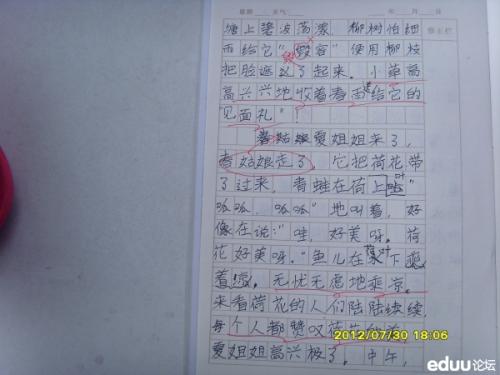 塘上碧波荡漾. 柳树怕细
雨给它"毁容"使用柳枝
把脸遮了起来. 小草高
高兴兴地收着春雨送给它的
"见面礼"!
夏姐姐来了,
春姑娘走了. 它把荷花带
了过来. 青蛙在荷叶上
"呱呱, 呱呱"地叫着, 好
像在说:"哇, 好美呀. 荷
花好美呀."鱼儿在荷叶下
着. 无忧无虑地乘凉.
来看荷花的人们陆陆续续,
每个人都赞叹荷花的美.
夏姐姐高兴极了. 中午,
2012/07/30 18:06
eduu论坛